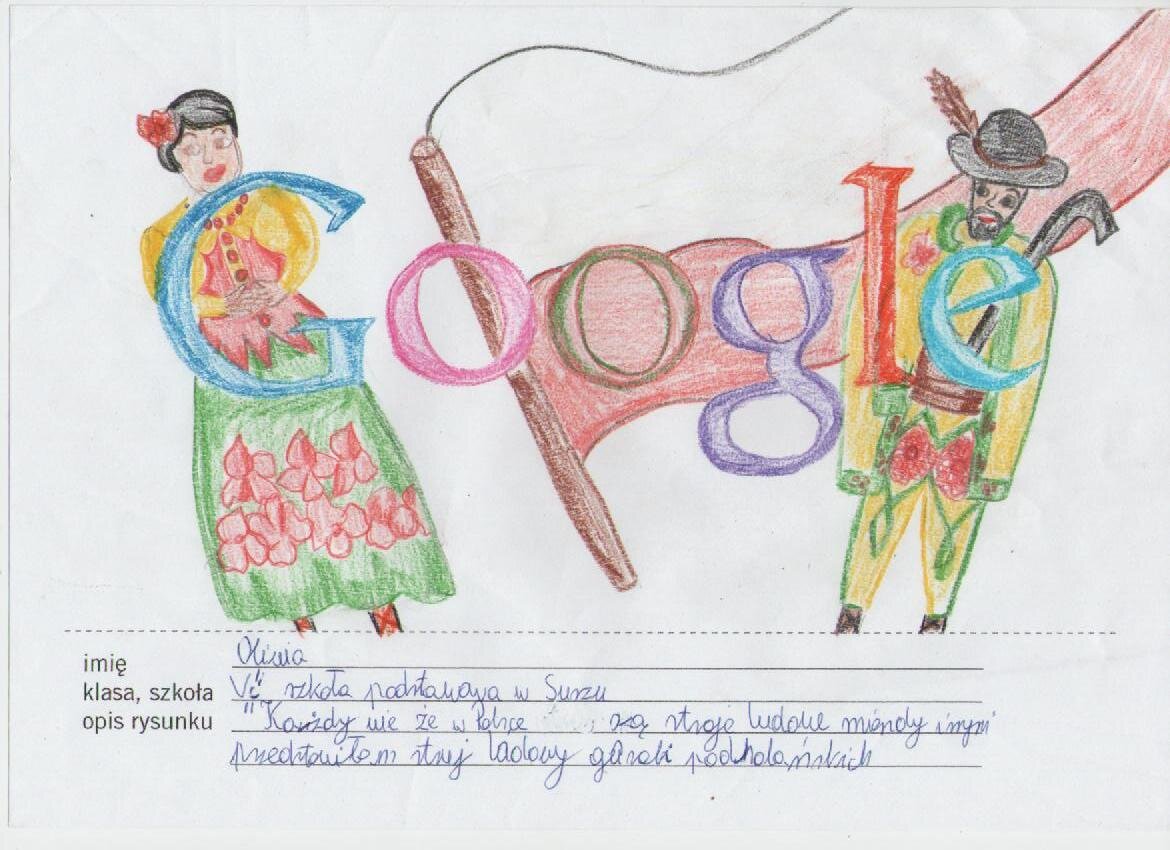 Google
imię Oliwia
klasa, szkoła Vc" szkoła podstawowa w Suszu
opis rysunku "Każdy wie że w Polsce są stroje ludowe miendy innymi
przedstawiłam strój ludowy górali podhalańskich